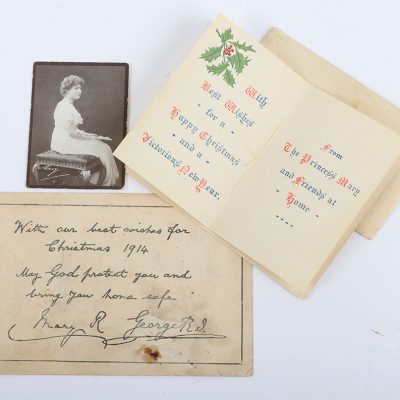 With
Best Wishes
- for a -
Happy Christmas
- and a -
Victorious New Year.
From
The Princess Mary
and Friends at
- Home -
- - - -
With our best wishes for
Christmas 1914
May God protect you and
bring you home safe
Mary R George R.I.